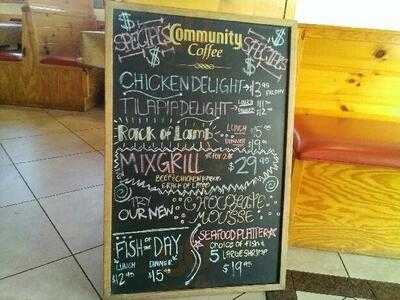 $ $
SPECIALS Community SPECIALS
Coffee
$ $
CHICKEN DELIGHT → $13.95
TILAPIA DELIGHT → LUNCH
DINNER
Rack of Lamb LUNCH
DINNER
MIX GRILL for 2 $29.95
BEEF & CHICKEN KABOB
& RACK OF LAMB
TRY
OUR NEW CHOCOLATE
MOUSSE
FISH OF THE DAY
LUNCH DINNER
$12.95 $15.95
SEAFOOD PLATTER
Choice of fish &
5 LARGE SHRIMP
$19.95